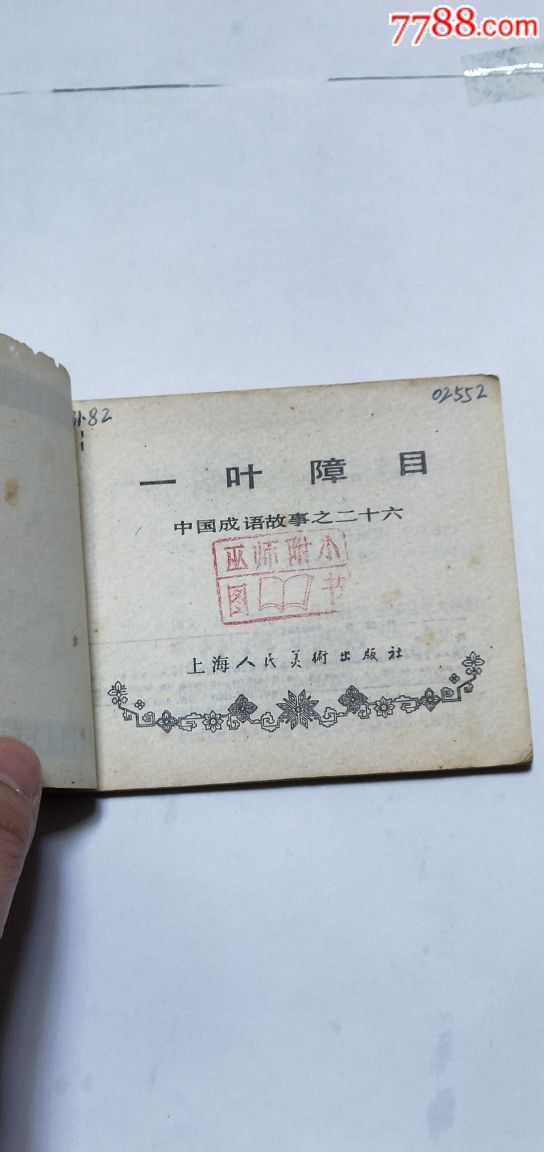 7788.com
02552
一叶障目
中国成语故事之二十六
巫师附小
图书
上海人民美術出版社